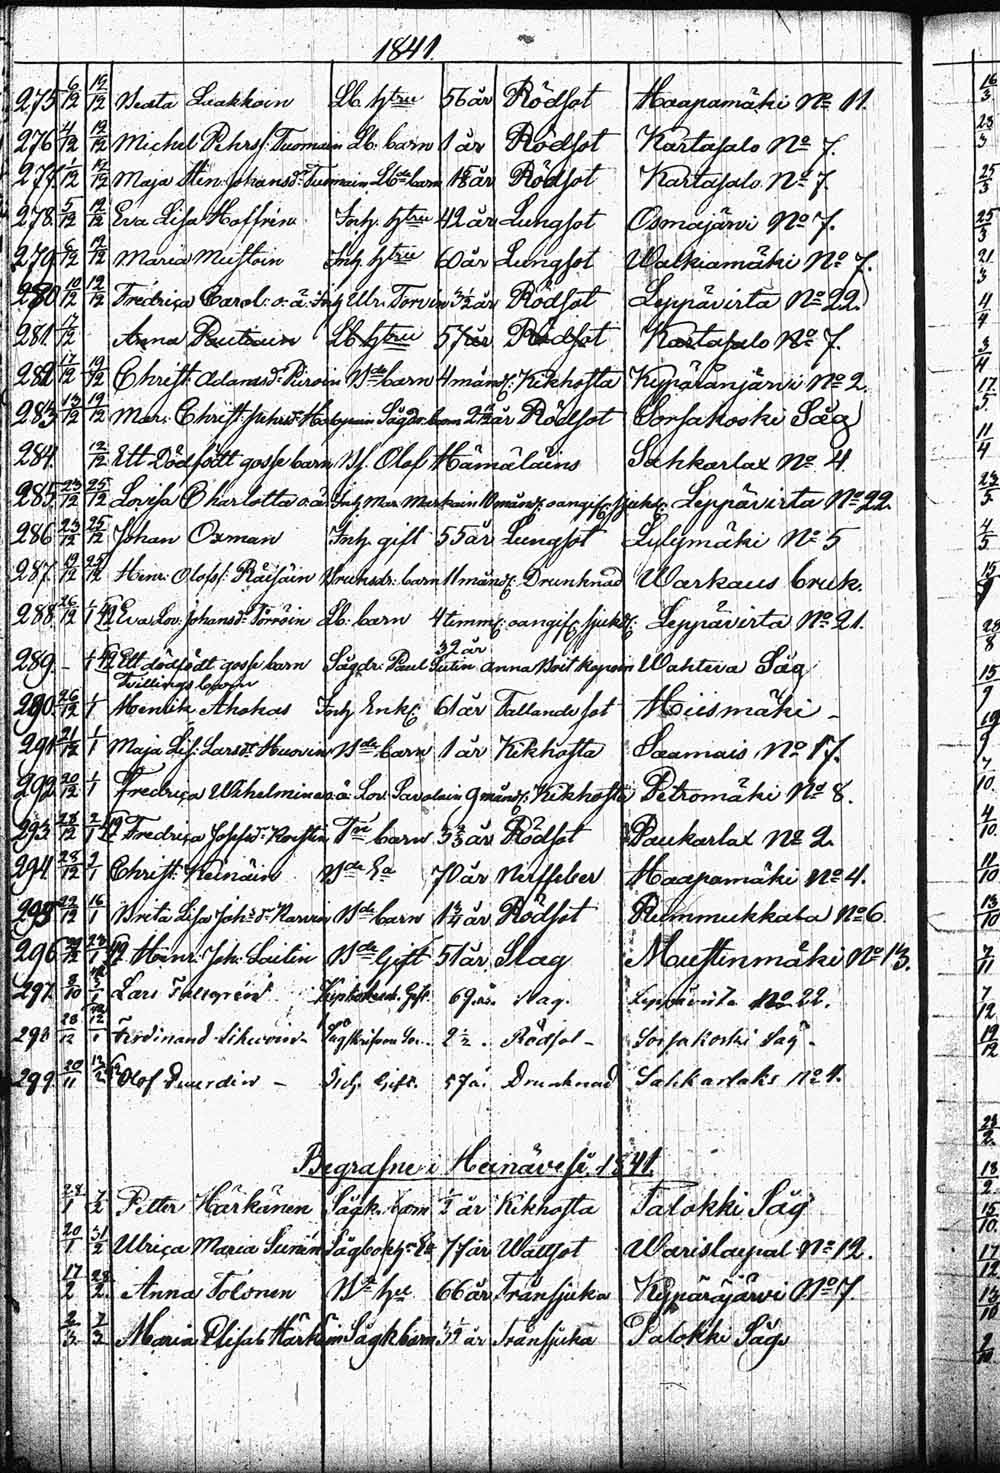 1841.
275 6/12 12/12 Beata Laakkoin Lb. hstru 56 år Rödsot Haapamäki No 11.
276 4/12 12/12 Michel Pehrs: Tuomain Lb: barn 1 år Rödsot Kartasalo No 7.
277 1/12 12/12 Maja Stin Johansd: Tuomain Lbde barn år Rödsot Kartasalo No 7
278 5/12 12/12 Eva Lisa Hoffrin Inh. hstru 42 år Lungsot Osmajärvi No 7.
279 6/12 12/12 Maria Mustoin Inh hstru 60 år Lungsot Walkiamäki No 7.
280 10/12 12/12 Fredrica Carol: o. ä. Inh Ulr. Torvin 3 1/2 år Rödsot Leppävirta No 22.
281 17/12 Anna Rautiain Lb hstru 57 år Rödsot Kartasalo No 7.
282 17/12 19/12 Christ: Adamsd: Piiroin Bde barn 4 mån: Kikhosta Kypäränjärvi No 2.
283 13/12 19/12 Mar: Christ: Sågdr: barn 2 1/2 år Rödsot Sorsakoski Såg
284 12/12 Ett Dödfödt gosse barn Bf. Olof Hämäläins Sahkarlax No 4.
285 23/12 25/12 Lovisa Charlotta o. ä. Inh Mar. Markain 10 mån: oangif: sjukd: Leppävirta No 22.
286 23/12 25/12 Johan Oxman Inh. gift 55 år Lungsot Lylymäki No 5
287 19/12 25/12 Henr: Olofss: Räisäin Bruksdr: barn 11 mån: Drunknad Warkaus bruk.
288 26/12 1/1 42 Eva Lov. Johansd: Torröin Lb: barn 4 timm: oangif: sjukd: Leppävirta No 21.
289 - 1/1 42 Ett dödfödt gosse barn Sågdr: Paul Lutin Anna Wahteva Såg
32 år
Tvillings barn
290 26/12 1/1 Henrik Ahokas Inh Enk: 61 år Fallande sot Hiismäki -
291 21/12 1/1 Maja Lis: Larsd: Huovin Bde barn 1 år Kikhosta Saamais No 17.
292 20/12 1/1 Fredrica Wilhelmina o. ä. Lov. Savolain 9 mån: Kikhosta Petromäki No 8.
293 28/12 2/1 42 Fredrica Josefsd: barn år Rödsot Paukarlax No 2.
294 28/12 2/1 Christ: Keinäin Bde Ea 70 år Nerffeber Haapamäki No 4.
295 22/12 16/1 Brita Lisa Joh:sd: Bde barn 1 3/4 år Rödsot Rummukkala No 6
296 42 Henr: Joh: Laitin Bde Gift 51 år Slag Mustinmäki No 13.
297 Lars Gift. 69 år. Slag. Leppävirta No 22.
298 28/12 Ferdinand Sikavoin - 2 1/2. Rödsot - Sorsakoski Såg -
299 20/11 Olof - Inh. Gift. 57 å. Drunknad Sahkarlaks No 4.
Begrafne i Heinävesi 1841.
28/1 7/2 Petter Härkänen Sågk. barn 1/2 år Kikhosta Palokki Såg
20/1 Ulrica Maria 77 år Wattsot Warislaxpal No 12.
17/2 28/2 Anna Tolonen Bde hu 66 år Trånsjuka Kypäräjärvi No 7.
2/3 7/3 Maria Elisab Sågk barn år Trånsjuka Palokki Såg